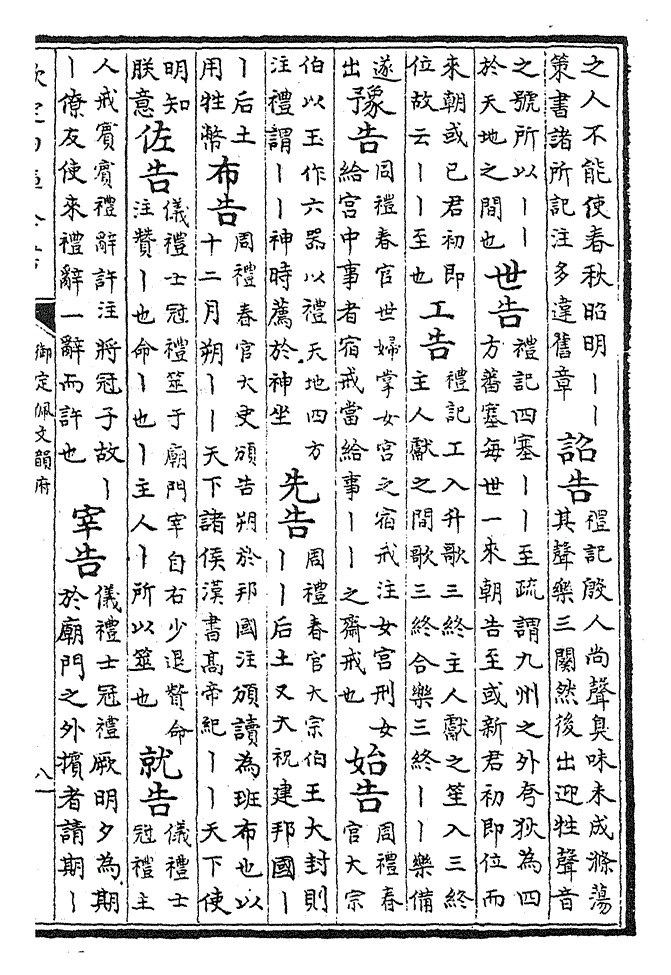 之人不能使春秋昭明丨丨
策書諸所記注多違舊章
詔告
禮記殷人尚聲臭味未成滌蕩
其聲樂三闋然後出迎牲聲音
之號所以丨丨
於天地之間也
世告
禮記四塞丨丨至疏謂九州之外夷狄為四
方蕃塞每世一來朝告至或新君初即位而
來朝或已君初即
位故云丨丨至也
工告
禮記工入升歌三終主人獻之笙入三終
主人獻之間歌三終合樂三終丨丨樂備
遂
出
豫告
周禮春官世婦掌女宮之宿戒注女宮刑女
給宮中事者宿戒當給事丨丨之齋戒也
始告
周禮春
官大宗
伯以玉作六器以禮天地四方
注禮謂丨丨神時薦於神坐
先告
周禮春官大宗伯王大封則
丨丨后土又大祝建邦國丨
丨后土
用牲幣
布告
周禮春官大史頒告朔於邦國注頒讀為班布也以
十二月朔丨丨天下諸侯漢書高帝紀丨丨天下使
明知
朕意
佐告
儀禮士冠禮筮于廟門宰自右少退贊命
注贊丨也命丨也丨主人丨所以筮也
就告
儀禮士
冠禮主
人戒賓賓禮辭許注將冠子故丨
丨僚友使來禮辭一辭而許也
宰告
儀禮士冠禮厥明夕為期
於廟門之外擯者請期丨
欽定四庫全書
御定佩文韻府
八